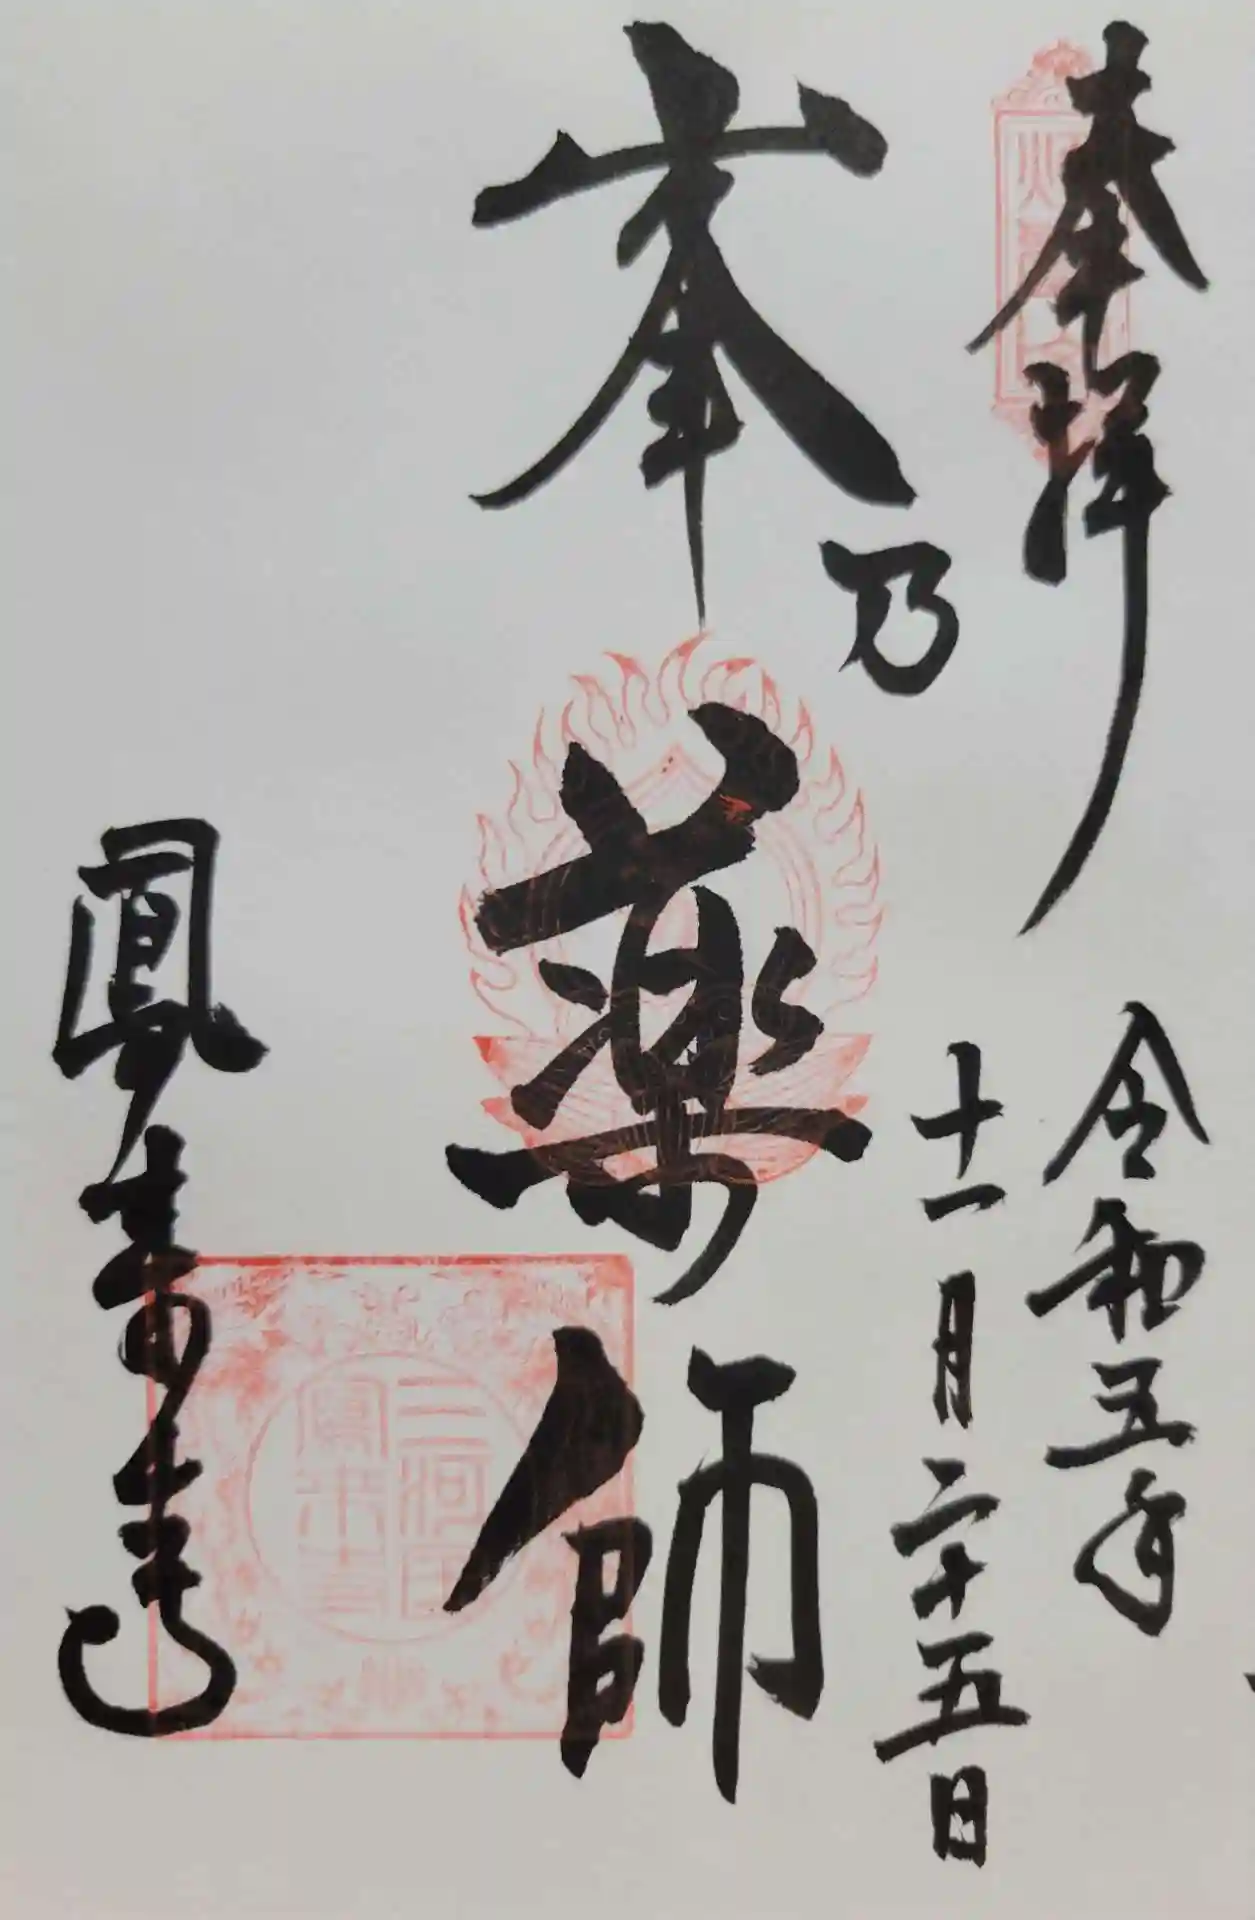 奉拝
令和五年
十一月二十五日
峯乃
薬師
鳳来寺
三河国
鳳来寺